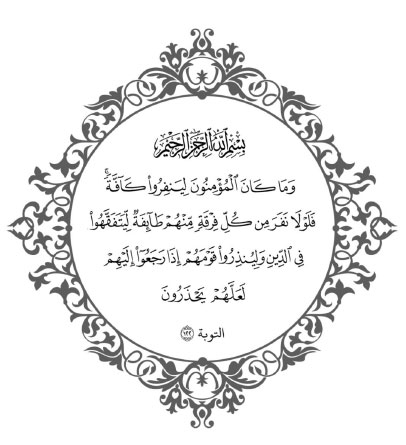 بِسْمِ ٱللَّهِ ٱلرَّحْمَٰنِ ٱلرَّحِيمِ
وَمَا كَانَ ٱلْمُؤْمِنُونَ لِيَنفِرُوا۟ كَآفَّةًۚ
فَلَوْلَا نَفَرَ مِن كُلِّ فِرْقَةٍ مِّنْهُمْ طَآئِفَةٌ لِّيَتَفَقَّهُوا۟
فِى ٱلدِّينِ وَلِيُنذِرُوا۟ قَوْمَهُمْ إِذَا رَجَعُوٓا۟ إِلَيْهِمْ
لَعَلَّهُمْ يَحْذَرُونَ
التوبة ١٢٢